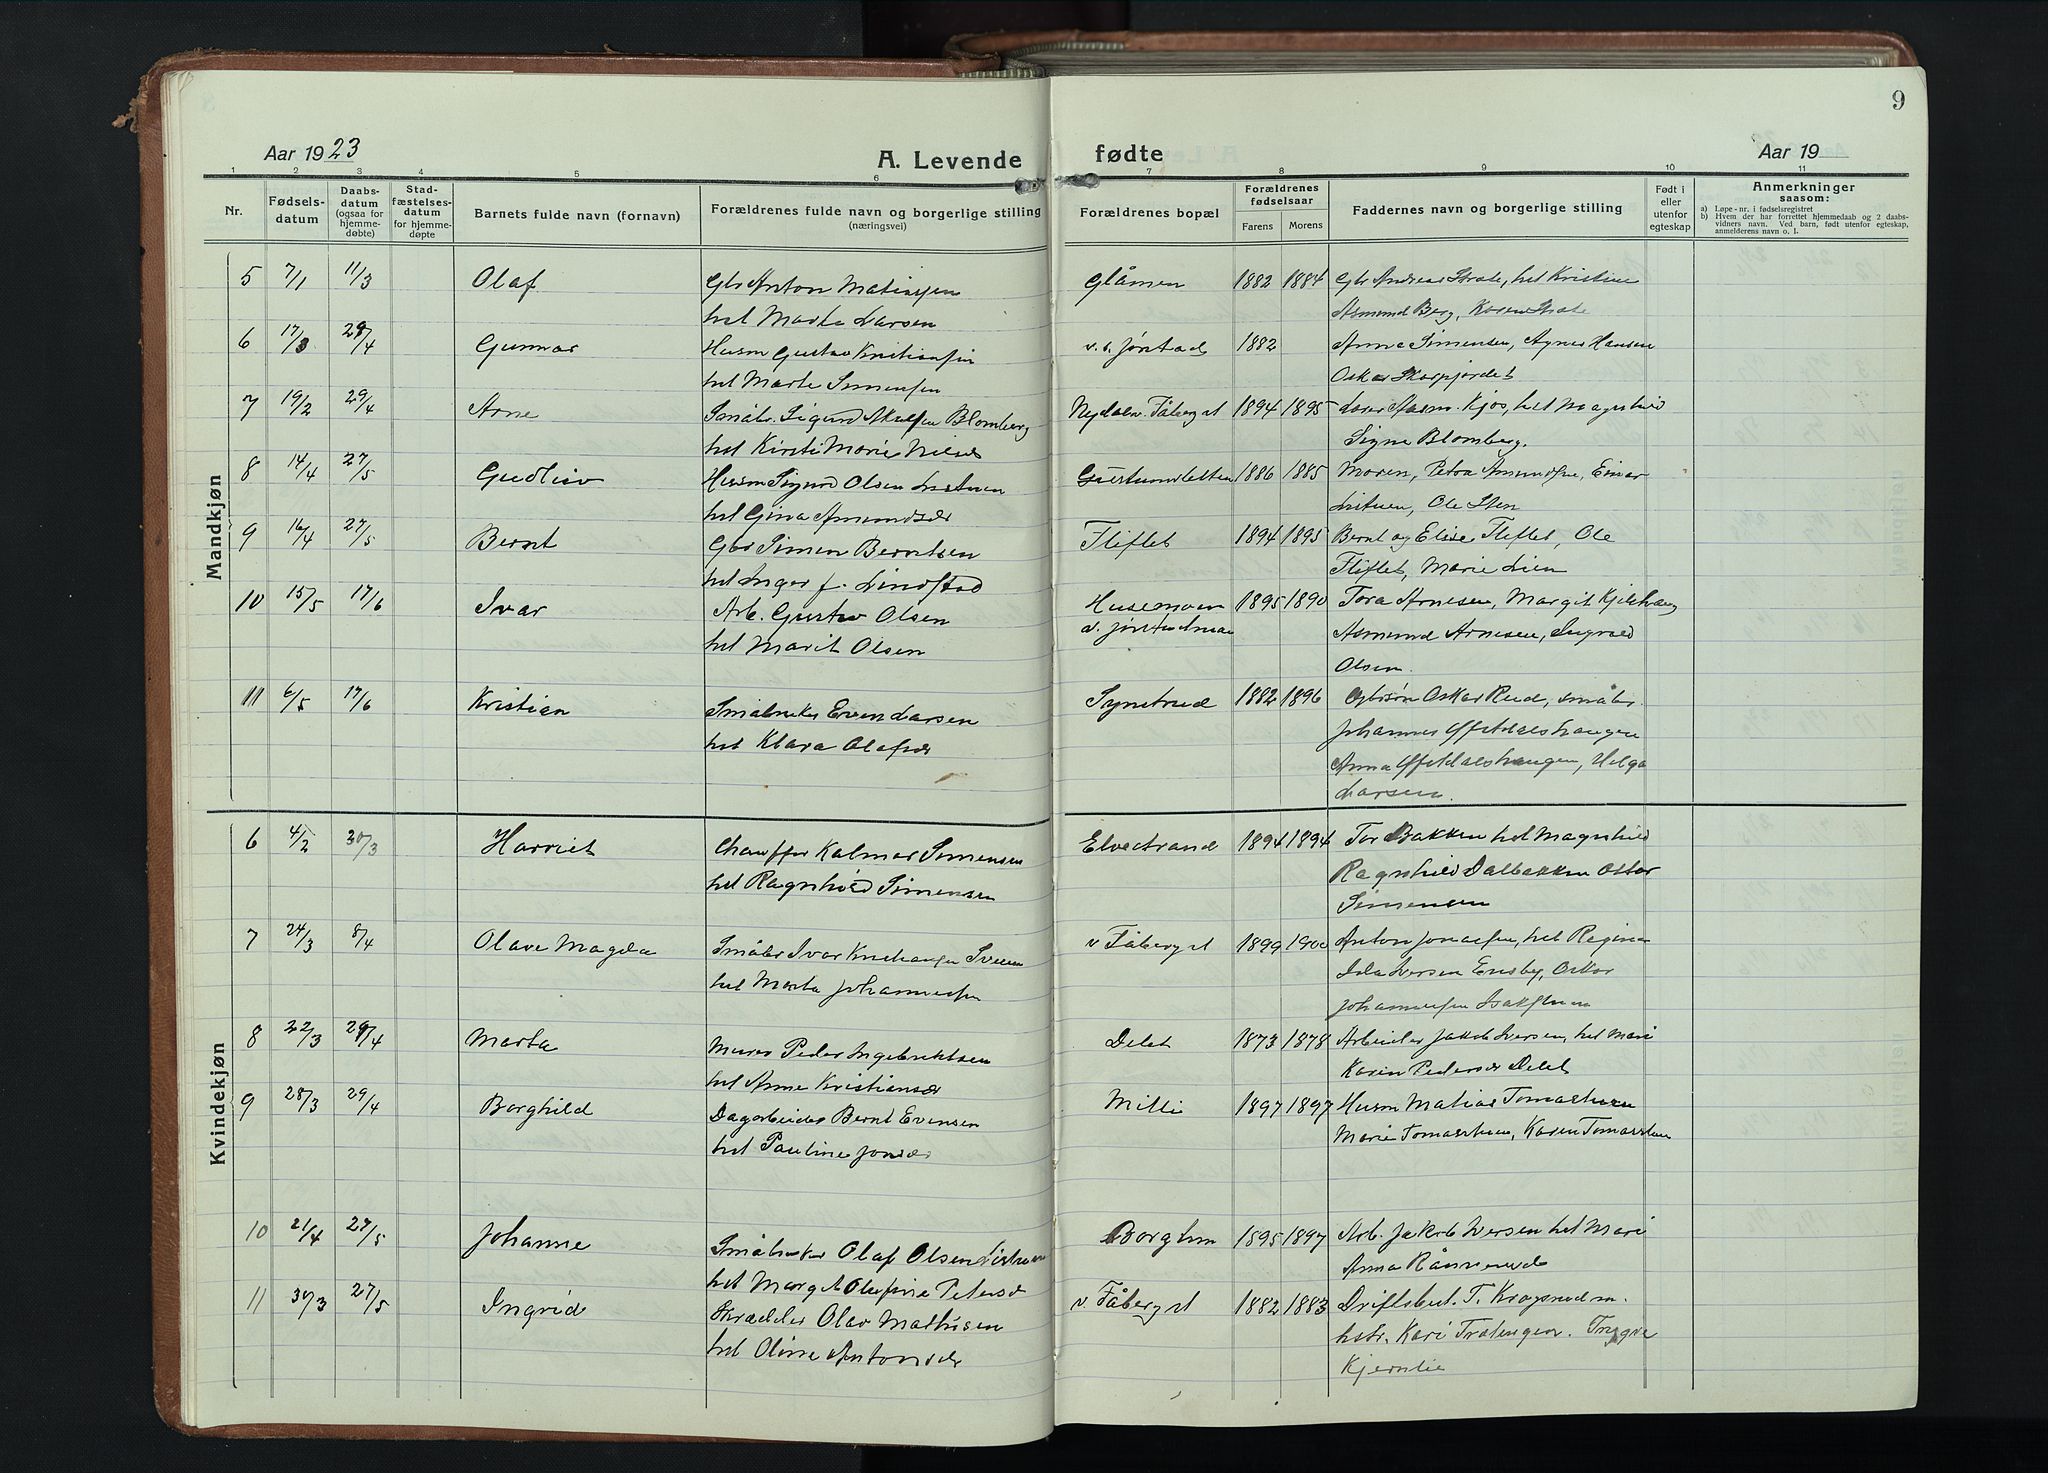 9
Aar 1923 A. Levende fødte Aar 19
1 2 3 4 5 6 7 8 9 10 11
Nr. Fødselsdatum Daabsdatum (ogsaa for hjemmedøbte) Stadfæstelsesdatum for hjemmedøpte Barnets fulde navn (fornavn) Forældrenes fulde navn og borgerlige stilling (næringsvei) Forældrenes bopæl Forældrenes fødselsaar Farens Morens Faddernes navn og borgerlige stilling Født i eller utenfor egteskap Anmerkninger saasom:
a) Løpe-nr. i fødselsregistret
b) Hvem der har forrettet hjemmedaab og 2 daabsvidners navn. Ved barn, født utenfor egteskap, anmelderens navn o. l.
Mandkjøn
5 7/1 11/3 Olaf Gbr Anton Matiassen Glåmen 1882 1884 Gbr Andreas Strate, hst Kristine
hst Marte Larsen Asmund Berg, Karen Strate
6 17/3 29/4 Gunnar Husm Gustav Kristiansen v. s. Jønstad 1882 Anna Simensen, Agnes Hansen
hst Marte Simensen Oskar
7 19/2 29/4 Arne Småbr. Sigurd Blomberg Nydalen Fåberg st 1894 1895 Kjos, hst Magnhild
hst Kirsti Marie Nilsdr Signe Blomberg.
8 14/4 27/5 Gudleiv Husm Sigurd Olsen 1886 1885 Moren, Petra Amundsen, Einar
hst Gina Amundsdr Ole Sten
9 16/4 27/5 Bernt Gbr Simen Berntsen Fliflet 1894 1895 Bernt og Elise Fliflet, Ole
hst Inger f. Lindstad Fliflet, Marie Lien
10 15/5 17/6 Ivar Arb. Gustav Olsen Husemoen 1895 1890 Tora Arnesen, Margit
hst Marit Olsen Asmund Arnesen, Ingvald
Olsen.
11 6/5 17/6 Kristian Småbruker Even Larsen Synstrud 1882 1896 Gbrsøn Oskar Rud, småbr.
hst Klara Olafsdr Johannes
Anna Helga
Larsen.
Kvindekjøn
6 4/2 30/3 Harriet Chauffør Kalmar Simensen Elvestrand 1894 1894 Tor Bakken hst Magnhild
hst Ragnhild Simensen Ragnhild Dalbakken Ottar
Simensen
7 24/3 8/4 Olave Magda Småbr Ivar Sveen v Fåberg st 1899 1900 Anton Jonassen, hst Regine
hst Marta Johannessen Ida Iversen Ensby, Oskar
Johannessen
8 22/3 29/4 Marta Murer Peder Ingebriktsen Delet 1873 1878 Arbeider Jakob Iversen, hst Mari
hst Anne Kristiansdr Karen Pedersdr Delet
9 28/3 29/4 Borghild Dagarbeider Bernt Evensen Milli 1897 1897 Husm Matias Tomasstuen
hst Pauline Jonsdr Marie Tomasstuen, Karen Tomasstuen
10 21/4 27/5 Johanne Småbruker Olaf Olsen 1895 1897 Arb. Jakob Iversen hst Mari
hst Margit Olufine Petersdr Anna
11 30/3 27/5 Ingrid Skrædder Olav Mathisen v Fåberg st 1882 1883 Driftsbest. T. Kragsrud m.
hst Oline Antonsdr hstr. Kari Trætengen. Trygve
Kjernlie